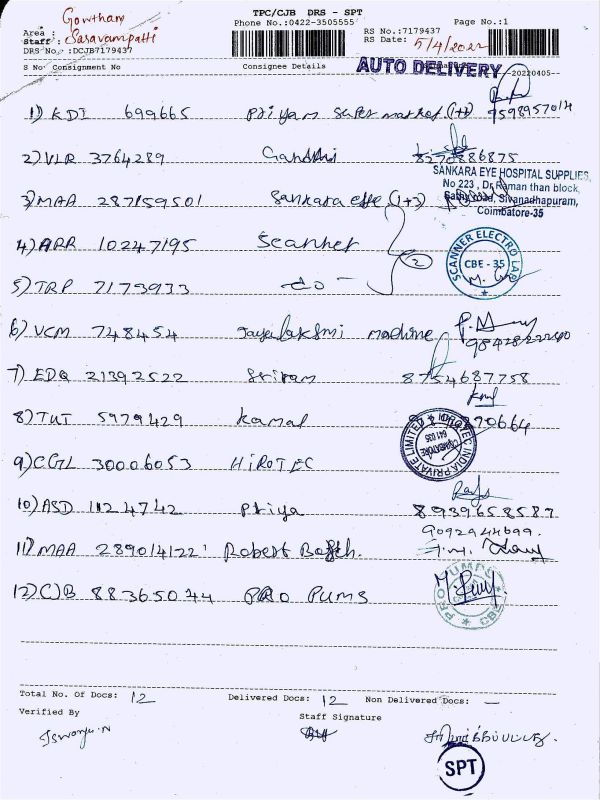 TPC/CJB DRS - SPT
Gowtham
Phone No.:0422-3505555
Page No.:1
Area :
Staff : Saravampatti
DRS No.:DCJB7179437
RS No.:7179437
RS Date: 5/4/2022
S No Consignment No Consignee Details
AUTO DELIVERY 20220405
1) KDI 699665 Priyam Super market (1+1) 9598957014
2) VLR 3764289 Gandhi 8270886875
SANKARA EYE HOSPITAL SUPPLIES,
No 223 , Dr Raman than block,
Sivanadhapuram,
Coimbatore-35
3) MAA 287159501 Sankara eye (1+3)
4) ARR 10247195 Scanner
2
SCANNER ELECTRO LAB
CBE - 35
5) TRP 7173933 do
6) VCM 748454 Jayalakshmi machine
7) EDQ 21392522 Sriram 8754687758
8) TUT 5979429 Kamal 70664
HIROTEC INDIA PRIVATE LIMITED
COIMBATORE
641 035
9) CGL 30006053 HIROTEC
10) ASD 1124742 Priya 8939658587
9092944699.
11) MAA 289014122 Robert Bosch.
12) CJB 88365044 PRO PUMS
PRO PUMPS
CBE
Total No. Of Docs: 12 Delivered Docs: 12 Non Delivered Docs: —
Verified By Staff Signature
Iswarya.N
SPT